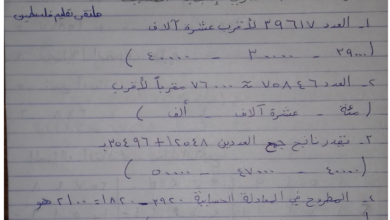 ملتقى تعليم فلسطين
١- العدد ٣٩٦١٧ لأقرب عشرة آلاف
( ٣٩٠٠٠ - ٣٠٠٠٠ - ٤٠٠٠٠ )
٢- العدد ٧٥٨٤٦ ≈ ٧٦٠٠٠ مقرباً لأقرب
( مئة - عشرة آلاف - ألف )
٣- نقدر ناتج جمع العددين ١٢٥٤٨ + ٣٥٤٩٦ بـ
( ٤٠٠٠٠ - ٤٧٠٠٠ - ٥٠٠٠٠ )
٤- المطروح في المعادلة الحسابية ٣٩٢٠ - ١٨٢٠ = ٢١٠٠ هو